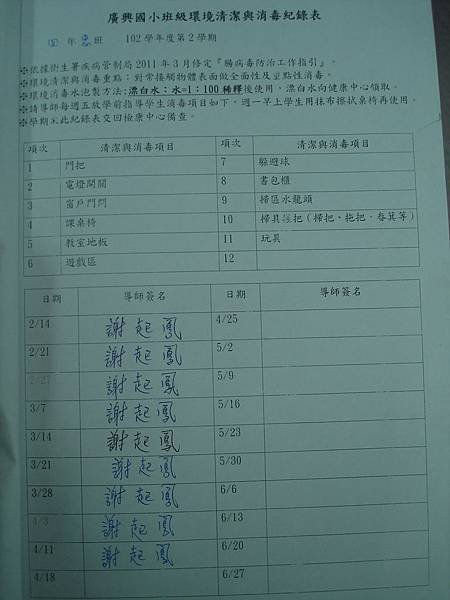 廣興國小班級環境清潔與消毒紀錄表
四 年 忠 班 102 學年度第 2 學期
※依據衛生署疾病管制局 2011 年 3 月修定『腸病毒防治工作指引』。
※環境清潔與消毒重點:對常接觸物體表面做全面性及重點性消毒。
※環境消毒水泡製方法:漂白水:水=1:100 稀釋後使用,漂白水向健康中心領取。
※請導師每週五放學前指導學生消毒項目如下,週一早上學生用抹布擦拭桌椅再使用。
※學期末此紀錄表交回檢康中心備查。
項次 清潔與消毒項目 項次 清潔與消毒項目
1 門把 7 躲避球
2 電燈開關 8 書包櫃
3 窗戶門閂 9 掃區水龍頭
4 課桌椅 10 掃具握把(掃把、拖把、畚箕等)
5 教室地板 11 玩具
6 遊戲區 12
日期 導師簽名 日期 導師簽名
2/14 謝起鳳 4/25
2/21 謝起鳳 5/2
2/27 謝起鳳 5/9
3/7 謝起鳳 5/16
3/14 謝起鳳 5/23
3/21 謝起鳳 5/30
3/28 謝起鳳 6/6
4/3 謝起鳳 6/13
4/11 謝起鳳 6/20
4/18 6/27